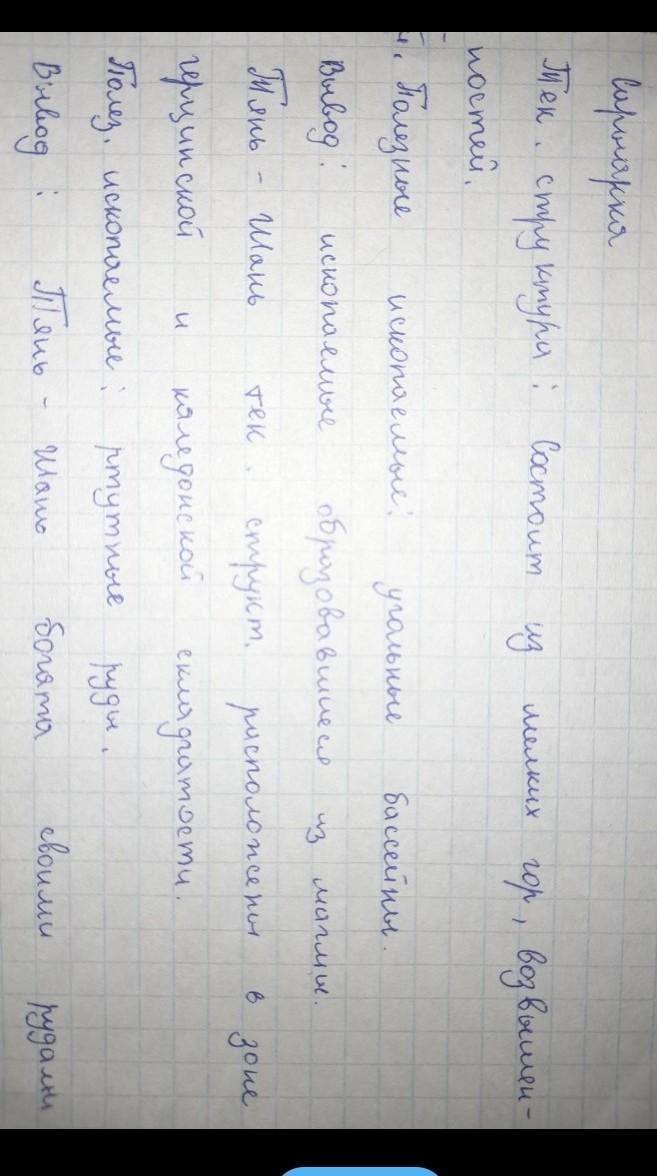 Сарыарка
Тек. структура: Состоит из мелких гор, возвышен-
ностей.
Полезные ископаемые: угольные бассейны.
Вывод: ископаемые образовавшиеся из магмы.
Тянь-Шань тек. структ. расположены в зоне
герцинской и каледонской складчатости.
Полез. ископаемые: ртутные руды.
Вывод: Тянь-Шань богата своими рудами